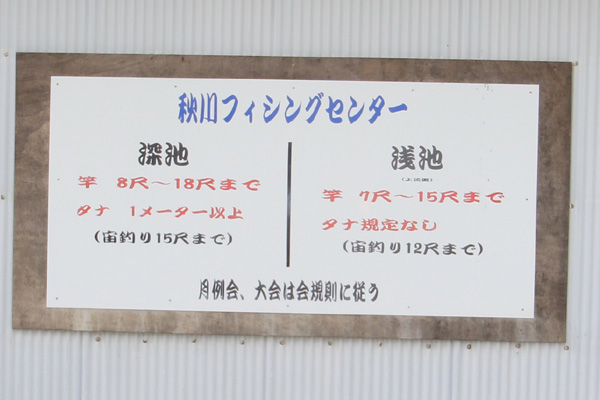 秋川フィシングセンター
深池
竿 8尺～18尺まで
タナ 1メーター以上
(宙釣り15尺まで)
浅池
竿 7尺～15尺まで
タナ規定なし
(宙釣り12尺まで)
月例会、大会は会規則に従う